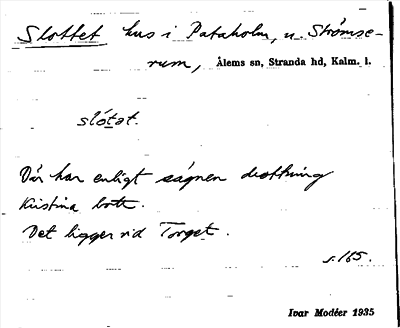 Slottet hus i Pataholm, u. Strömse-
rum, Ålems sn, Stranda hd, Kalm. l.
slótət.
Där har enligt sägnen drottning
Kristina bott.
Det ligger vid Torget.
s. 165.
Ivar Modéer 1935